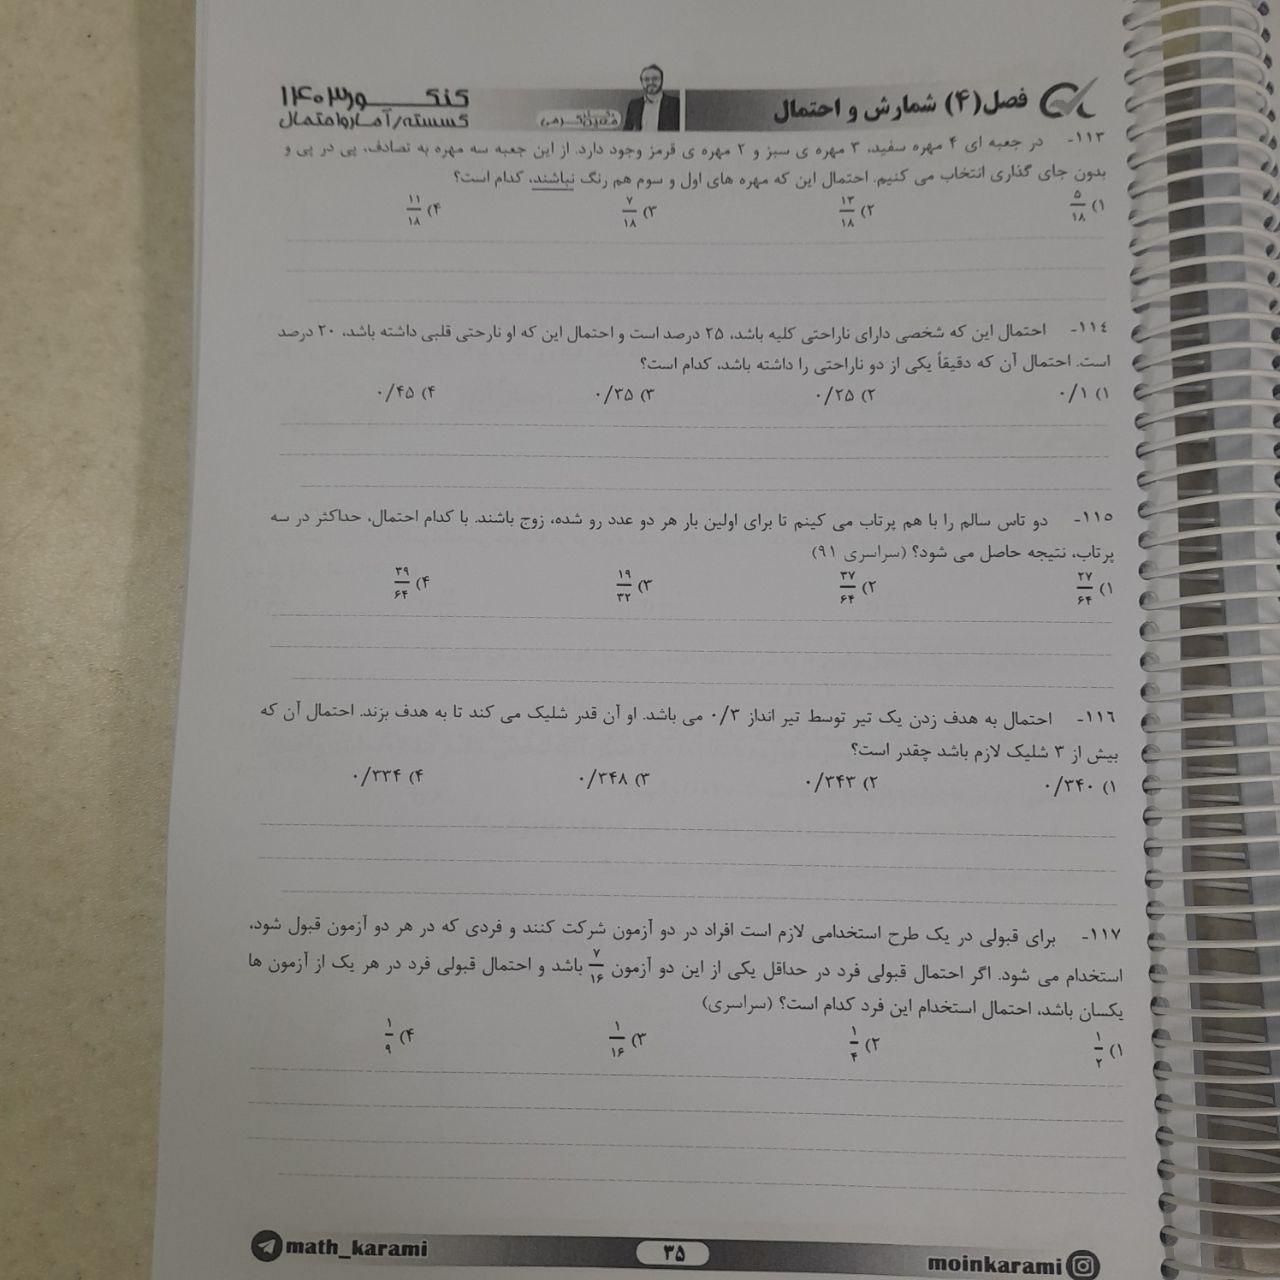 فصل(۴) شمارش و احتمال
کنکور۱۴۰۳
گسسته/آمارواحتمال
۱۱۳- در جعبه ای ۴ مهره سفید، ۳ مهره ی سبز و ۲ مهره ی قرمز وجود دارد. از این جعبه سه مهره به تصادف، پی در پی و
بدون جای گذاری انتخاب می کنیم. احتمال این که مهره های اول و سوم هم رنگ نباشند، کدام است؟
۱) ۵/۱۸ ۲) ۱۳/۱۸ ۳) ۷/۱۸ ۴) ۱۱/۱۸
۱۱۴- احتمال این که شخصی دارای ناراحتی کلیه باشد، ۲۵ درصد است و احتمال این که او نارحتی قلبی داشته باشد، ۲۰ درصد
است. احتمال آن که دقیقاً یکی از دو ناراحتی را داشته باشد، کدام است؟
۱) ۰/۱ ۲) ۰/۲۵ ۳) ۰/۳۵ ۴) ۰/۴۵
۱۱۵- دو تاس سالم را با هم پرتاب می کینم تا برای اولین بار هر دو عدد رو شده، زوج باشند. با کدام احتمال، حداکثر در سه
پرتاب، نتیجه حاصل می شود؟ (سراسری ۹۱)
۱) ۲۷/۶۴ ۲) ۳۷/۶۴ ۳) ۱۹/۳۲ ۴) ۳۹/۶۴
۱۱۶- احتمال به هدف زدن یک تیر توسط تیر انداز ۰/۳ می باشد. او آن قدر شلیک می کند تا به هدف بزند. احتمال آن که
بیش از ۳ شلیک لازم باشد چقدر است؟
۱) ۰/۳۴۰ ۲) ۰/۳۴۳ ۳) ۰/۳۴۸ ۴) ۰/۳۳۴
۱۱۷- برای قبولی در یک طرح استخدامی لازم است افراد در دو آزمون شرکت کنند و فردی که در هر دو آزمون قبول شود،
استخدام می شود. اگر احتمال قبولی فرد در حداقل یکی از این دو آزمون ۷/۱۶ باشد و احتمال قبولی فرد در هر یک از آزمون ها
یکسان باشد، احتمال استخدام این فرد کدام است؟ (سراسری)
۱) ۱/۲ ۲) ۱/۴ ۳) ۱/۱۶ ۴) ۱/۹
math_karami
۳۵
moinkarami